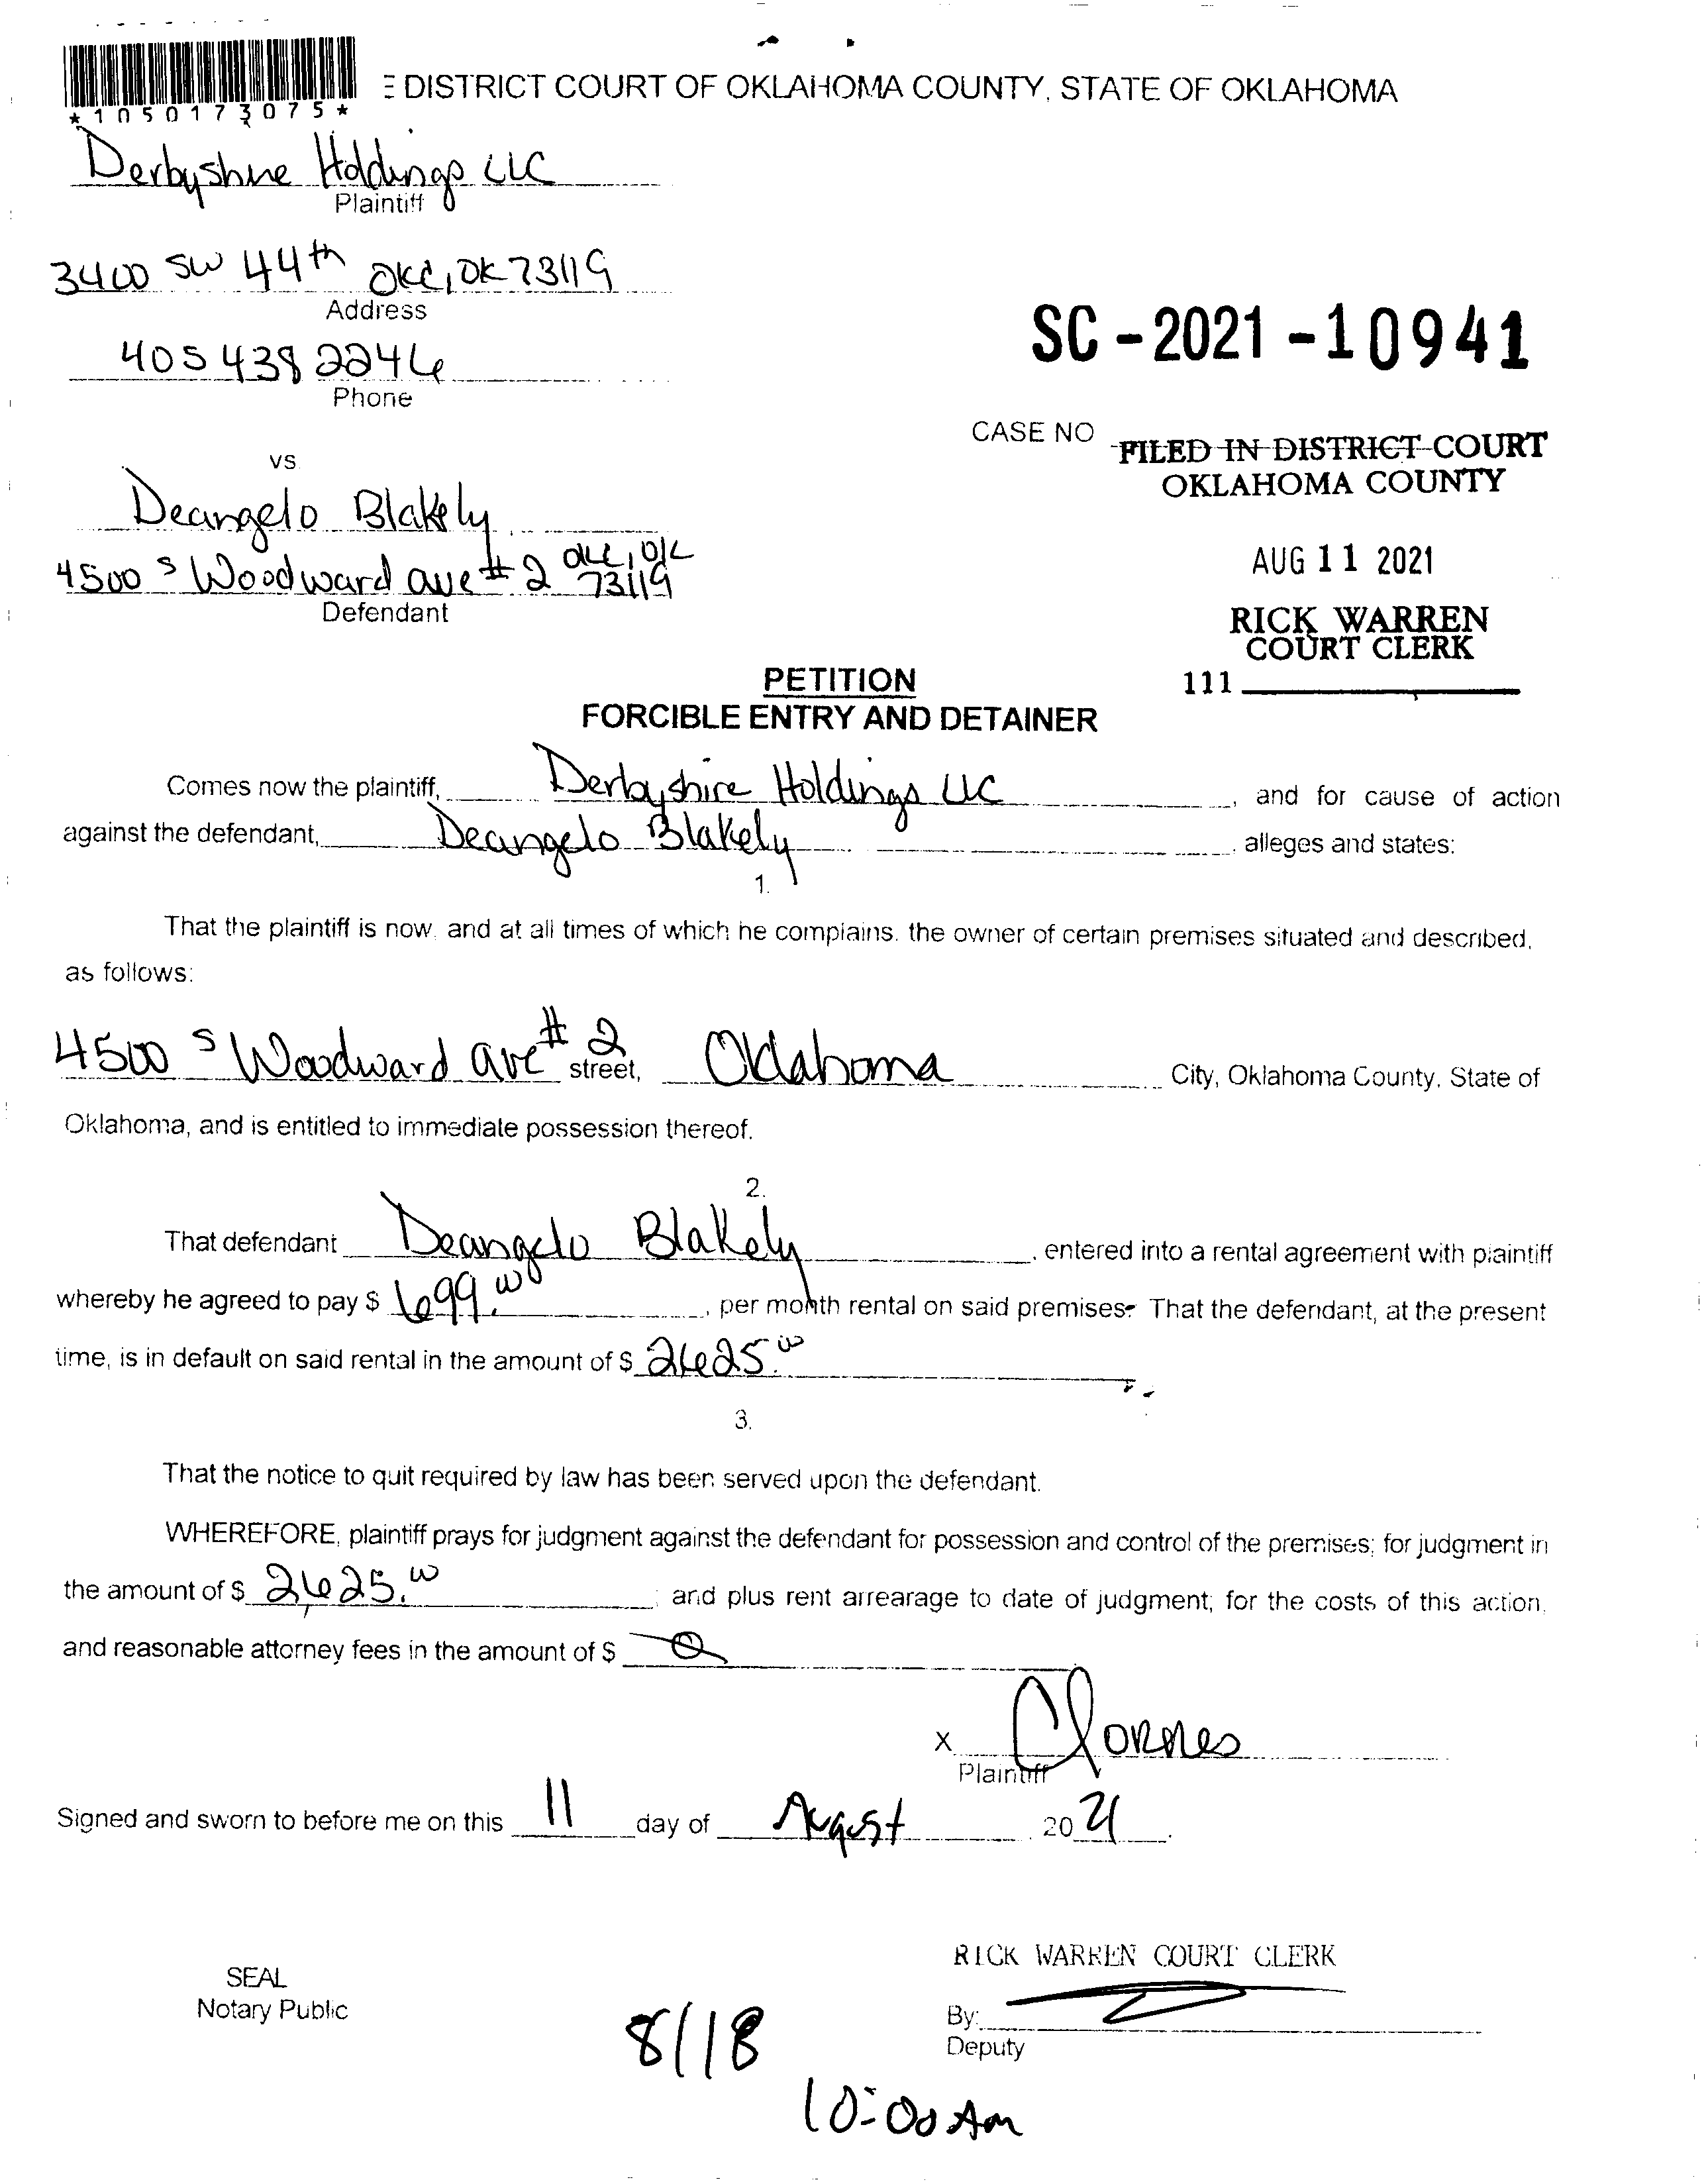 DISTRICT COURT OF OKLAHOMA COUNTY, STATE OF OKLAHOMA
*1050173075*
Derbyshire Holdings LLC
Plaintiff
3400 SW 44th OKC, OK 73119
Address
405 438 2246
Phone
SC-2021-10941
CASE NO
FILED IN DISTRICT COURT
OKLAHOMA COUNTY
vs
Deangelo Blakely
AUG 11 2021
4500 S Woodward ave #2 OKC, OK 73119
Defendant
RICK WARREN
COURT CLERK
111
PETITION
FORCIBLE ENTRY AND DETAINER
Comes now the plaintiff, Derbyshire Holdings LLC, and for cause of action
against the defendant, Deangelo Blakely alleges and states:
1.
That the plaintiff is now, and at all times of which he complains, the owner of certain premises situated and described,
as follows:
4500 S Woodward ave #2 street, Oklahoma City, Oklahoma County, State of
Oklahoma, and is entitled to immediate possession thereof.
2.
That defendant Deangelo Blakely, entered into a rental agreement with plaintiff
whereby he agreed to pay $ 699.00, per month rental on said premises. That the defendant, at the present
time, is in default on said rental in the amount of $ 2625.00
3.
That the notice to quit required by law has been served upon the defendant.
WHEREFORE, plaintiff prays for judgment against the defendant for possession and control of the premises; for judgment in
the amount of $ 2625.00; and plus rent arrearage to date of judgment; for the costs of this action,
and reasonable attorney fees in the amount of $ 0
X
Plaintiff
Signed and sworn to before me on this 11 day of August 2021.
RICK WARREN COURT CLERK
SEAL
Notary Public
By:
Deputy
8/18
10:00 Am